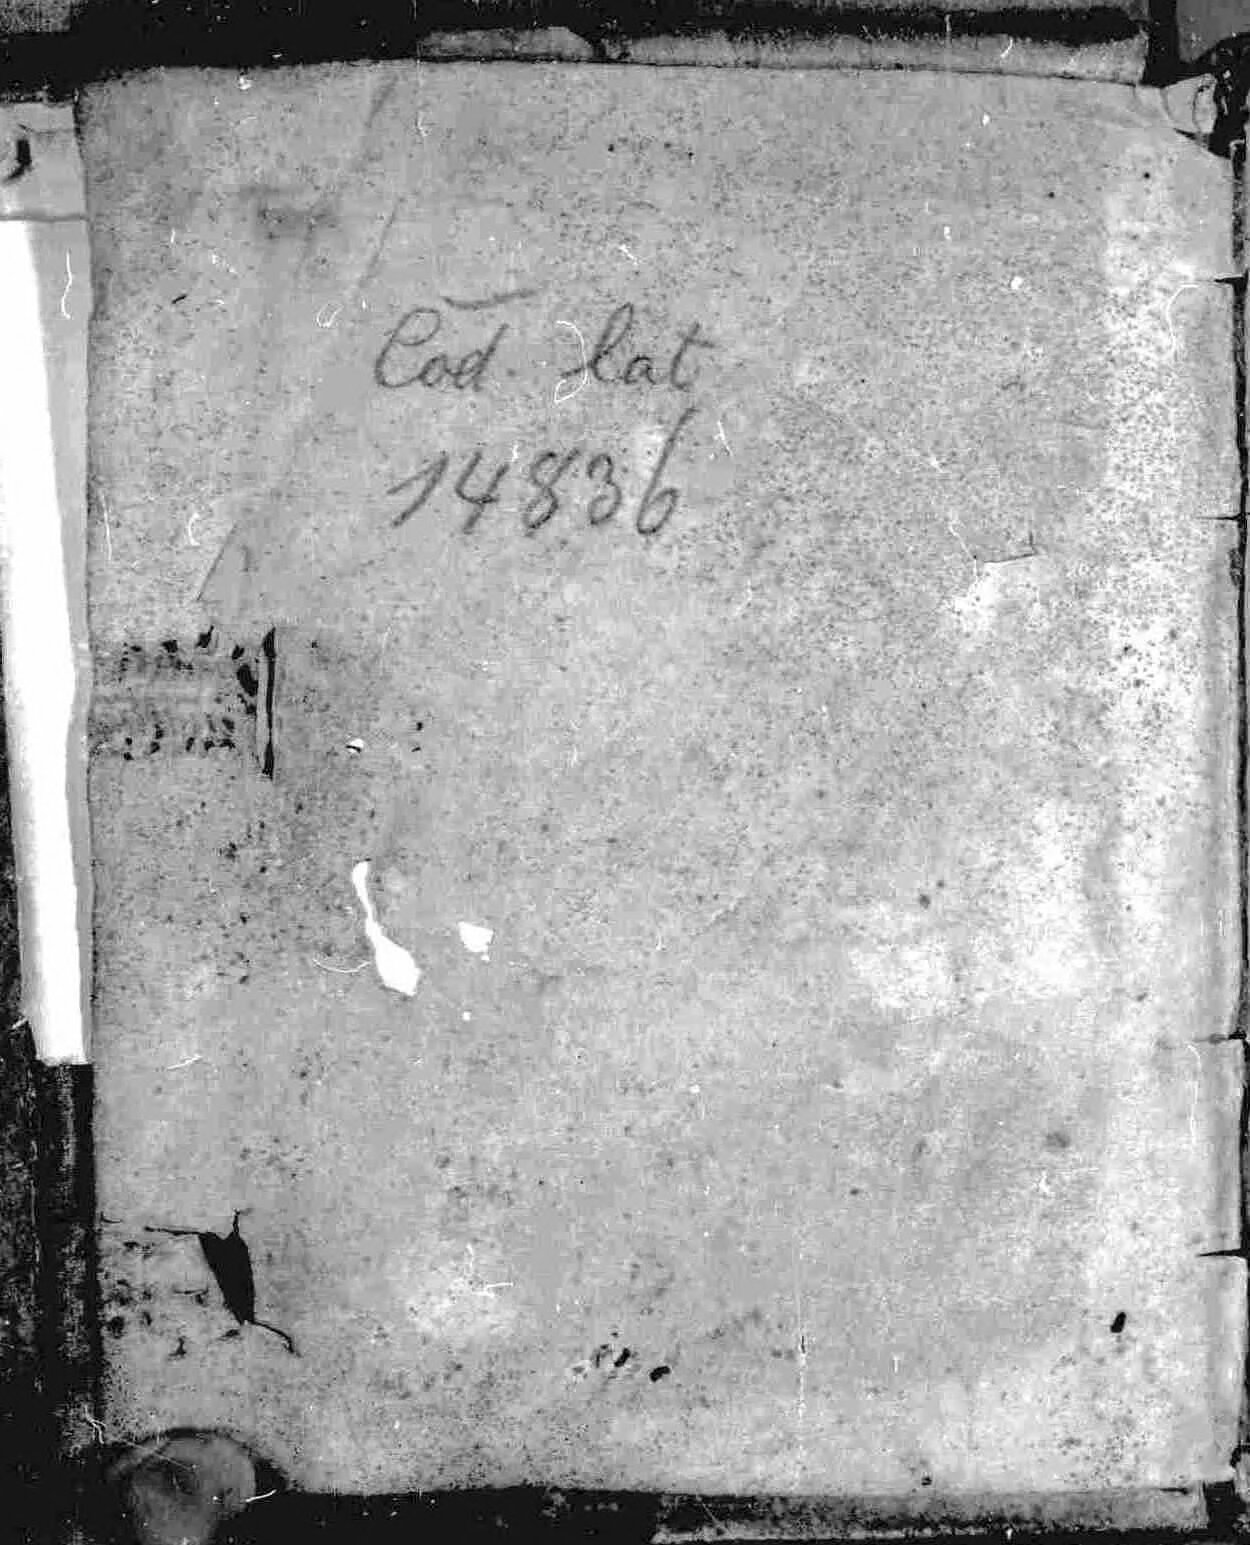 Cod. lat
14836